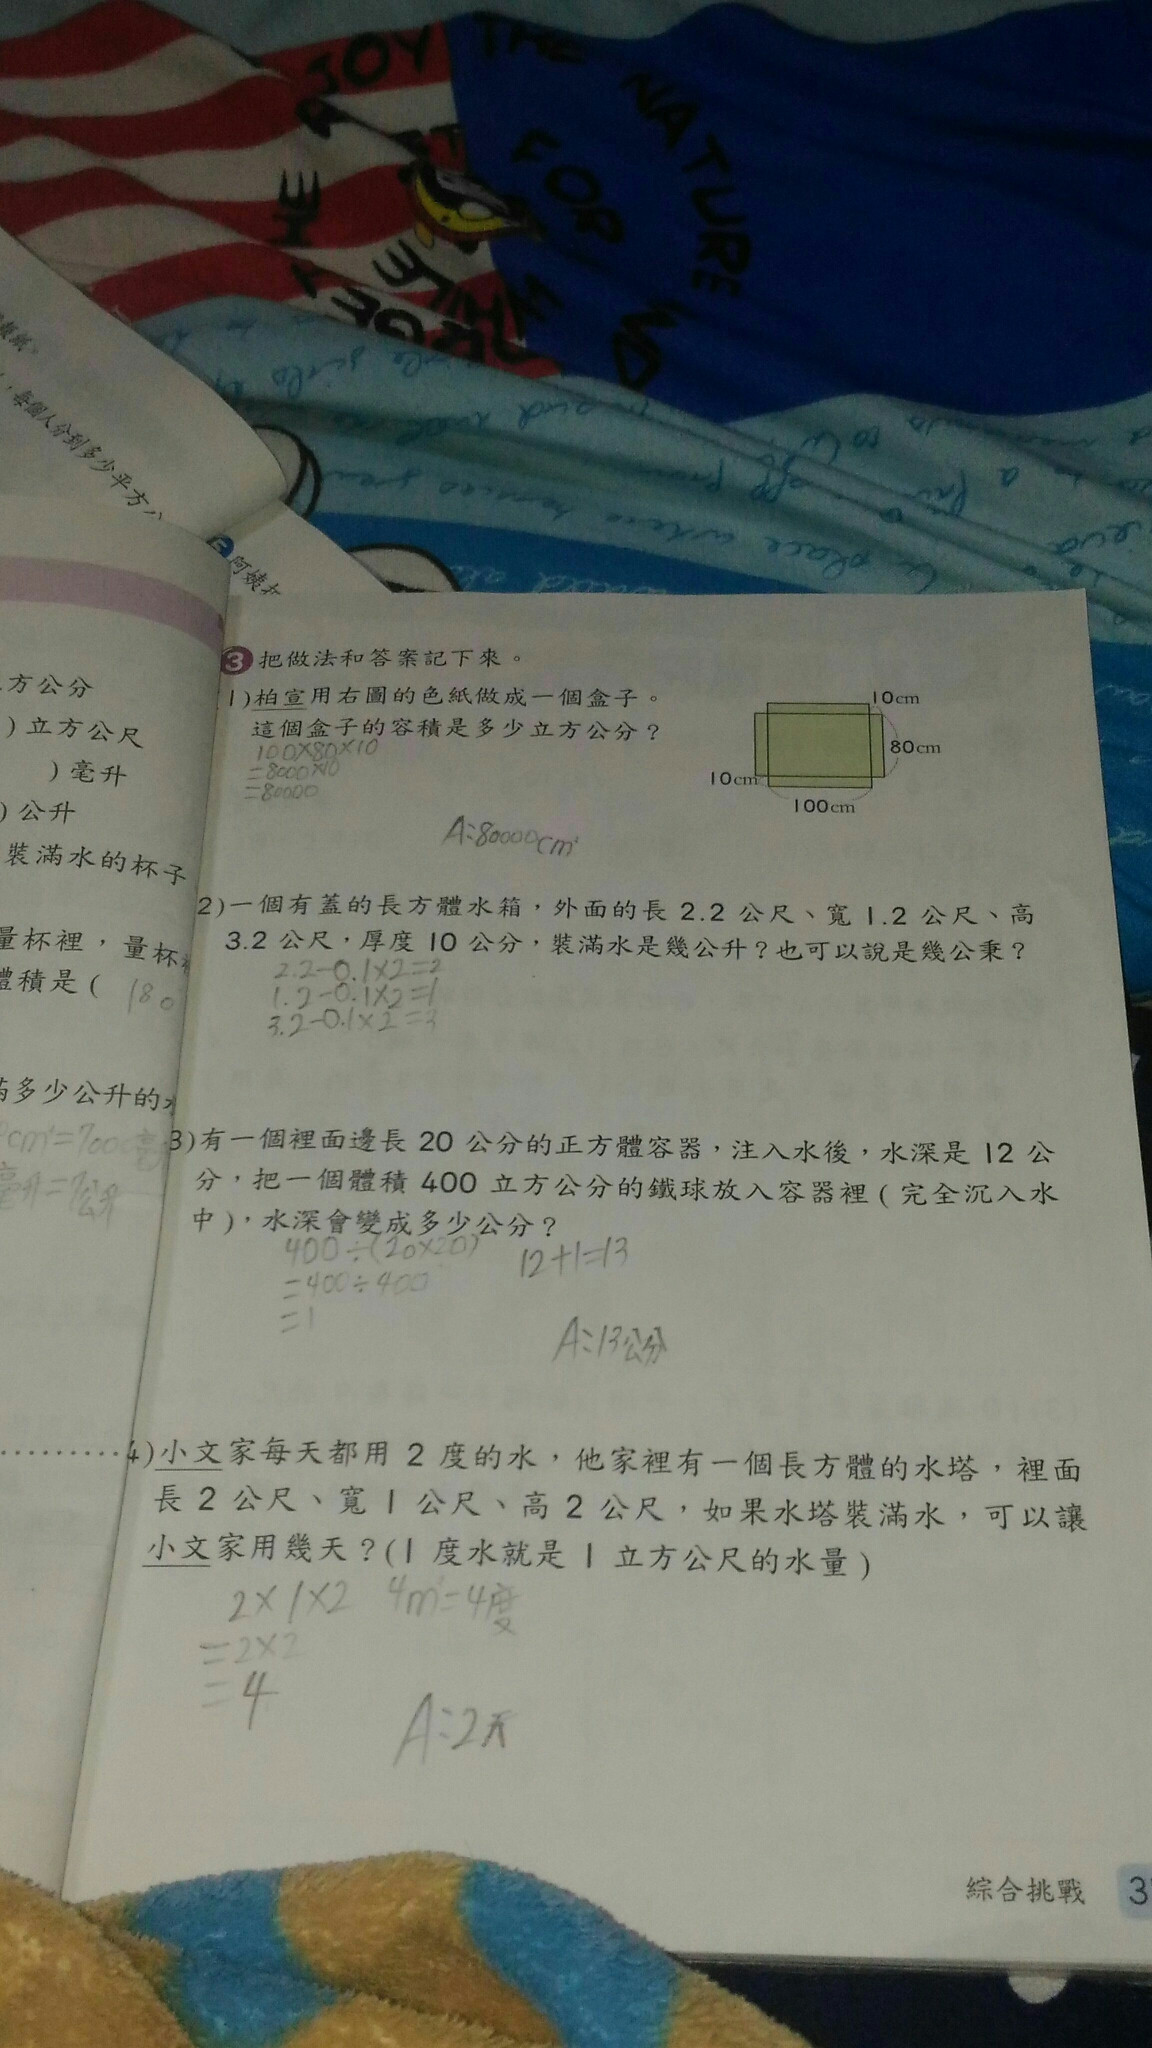 JOY THE NATURE
FOR
每個人分到多少平方
阿姨
方公分
)立方公尺
)毫升
)公升
裝滿水的杯子
量杯裡，量杯
體積是( 180
多少公升的水
cm³=7000毫
毫升=7公升
3 把做法和答案記下來。
1)柏宣用右圖的色紙做成一個盒子。
這個盒子的容積是多少立方公分？
100×80×10
=8000×10
=80000
A:80000cm³
10cm
80cm
10cm
100cm
2)一個有蓋的長方體水箱，外面的長 2.2 公尺、寬 1.2 公尺、高
3.2 公尺，厚度 10 公分，裝滿水是幾公升？也可以說是幾公秉？
2.2-0.1×2=2
1.2-0.1×2=1
3.2-0.1×2=3
3)有一個裡面邊長 20 公分的正方體容器，注入水後，水深是 12 公
分，把一個體積 400 立方公分的鐵球放入容器裡(完全沉入水
中)，水深會變成多少公分？
400÷(20×20) 12+1=13
=400÷400
=1
A:13公分
4)小文家每天都用 2 度的水，他家裡有一個長方體的水塔，裡面
長 2 公尺、寬 1 公尺、高 2 公尺，如果水塔裝滿水，可以讓
小文家用幾天？(1 度水就是 1 立方公尺的水量)
2×1×2 4m³=4度
=2×2
=4
A:2天
綜合挑戰